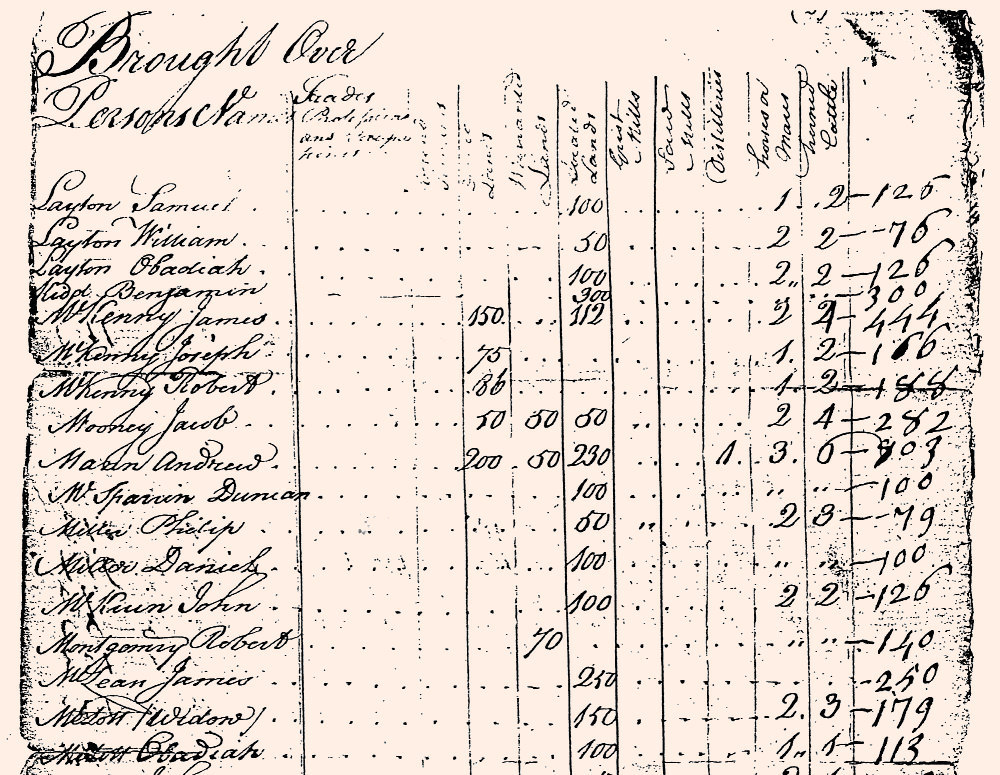 Brought Over
Persons Names Trades Professions and Lands Lands Lands Grist Mills Saw Mills Distilleries Horses or Mares Horned Cattle
Layton Samuel 100 1 2 126
Layton William 50 2 2 76
Layton Obadiah 100 2 2 126
Kidd Benjamin 300 300
McKenny James 150 112 2 4 444
McKenny Joseph 75 1 2 166
McKenny Robert 86 1 2 188
Mooney Jacob 50 50 50 2 4 282
Mann Andrew 200 50 230 1 3 6 803
Mc Sparrin Duncan 100 100
Miller Philip 50 2 3 79
Miller Daniel 100 100
McKuin John 100 2 2 126
Montgomry Robert 70 140
McLean James 250 250
(Widow) 150 2 3 179
Obadiah 100 1 1 113